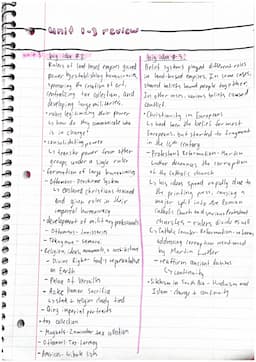 unit 1-3 review
unit 3
big idea #2:
Rulers of land based empires gained
power by establishing bureaucracies,
sponsoring the creation of art,
centralizing tax collection, and
developing large militaries.
- rulers legitimizing their power
↳ how do they communicate who
is in charge?
- consolidating power
↳ transfer power from other
groups under a single ruler
- formation of large bureaucracies
- Ottomans - Devshirme System
↳ enslaved christians trained
and given roles in their
imperial bureaucracy
- development of military professionals
- Ottomans - Janissaries
- Tokugawa - Samurai
- Religion, ideas, monuments, architecture
- Divine Right - God's representative
on Earth
- Palace of Versailles
- Aztec Human Sacrifice
- Qing imperial portraits
- tax collection
- Mughals - Zamindar tax collection
- Ottomans - Tax farming
- Aztecs - tribute lists
big idea #3:
Belief systems played different roles
in land-based empires. In some cases,
shared beliefs bound people together.
In other cases, various beliefs caused
conflict.
- Christianity in Europe
↳ had been the beliefs for most
Europeans, but started to fragment
in the 16th century
- Protestant Reformation - Martin
Luther denounces the corruption
of the Catholic church
↳ his ideas spread rapidly due to
the printing press, causing a
major split into the Roman
Catholic Church and various Protestant
churches
by Martin Luther
- reaffirms ancient beliefs
↳ continuity
- Sikhism in South Asia - Hinduism and
Islam - change & continuity